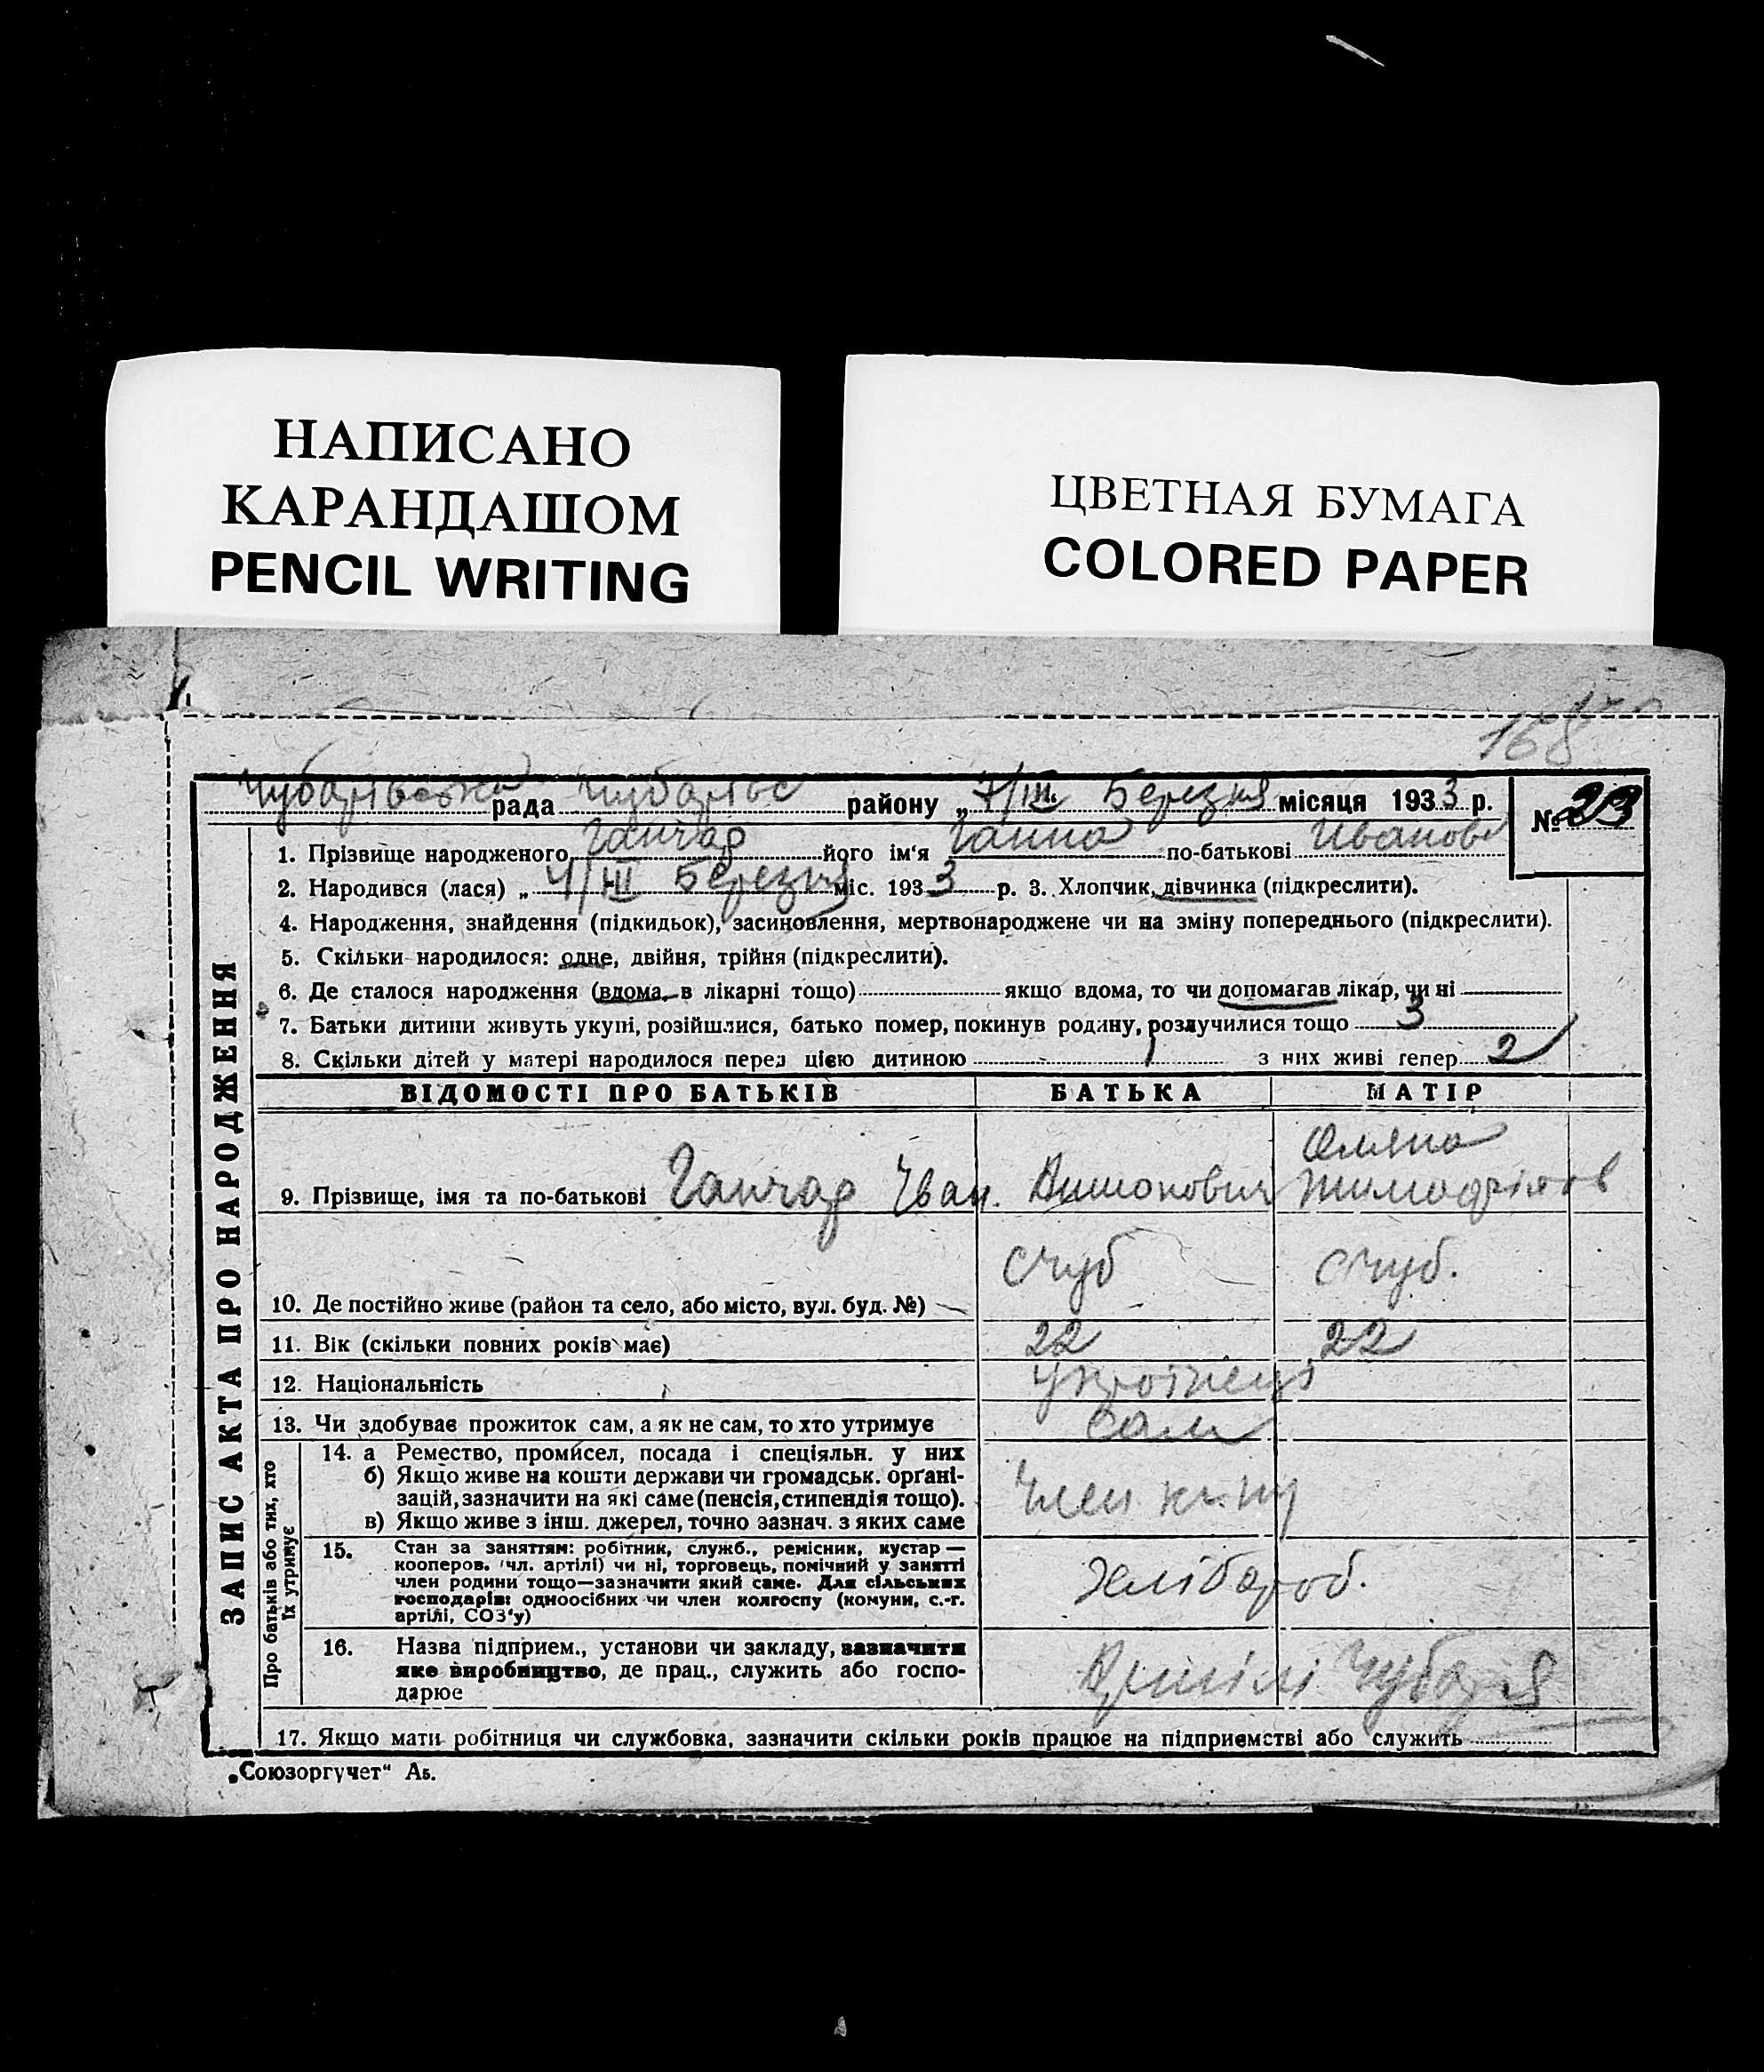 НАПИСАНО
КАРАНДАШОМ
PENCIL WRITING
ЦВЕТНАЯ БУМАГА
COLORED PAPER
168
Чубарівська рада Чубарівс району „ 7/III. Березня місяця 1933 р.
№ 23
1. Прізвище народженого Ганчар його ім‘я Ганна по-батькові Іванов
2. Народився (лася) „ 4/III Березня міс. 1933 р. 3. Хлопчик, дівчинка (підкреслити).
4. Народження, знайдення (підкидьок), засиновлення, мертвонароджене чи на зміну попереднього (підкреслити).
5. Скільки народилося: одне, двійня, трійня (підкреслити).
6. Де сталося народження (вдома, в лікарні тощо) якщо вдома, то чи допомагав лікар, чи ні
7. Батьки дитини живуть укупі, розійшлися, батько помер, покинув родину, розлучилися тощо 3
8. Скільки дітей у матері народилося перед цією дитиною 1 з них живі тепер 2
ЗАПИС АКТА ПРО НАРОДЖЕННЯ
ВІДОМОСТІ ПРО БАТЬКІВ БАТЬКА МАТІР
9. Прізвище, імя та по-батькові Ганчар Іван.
10. Де постійно живе (район та село, або місто, вул. буд. №) с Чуб с Чуб.
11. Вік (скільки повних років має) 22 22
12. Національність Українець
13. Чи здобуває прожиток сам, а як не сам, то хто утримує сам
Про батьків або тих, хто
їх утримує
14. а Ремество, промисел, посада і спеціяльн. у них
б) Якщо живе на кошти держави чи громадськ. орґані-
зацій, зазначити на які саме (пенсія, стипендія тощо).
в) Якщо живе з інш. джерел, точно зазнач. з яких саме
Член
15. Стан за заняттям: робітник, служб., ремісник, кустар —
кооперов. (чл. артілі) чи ні, торговець, помічний у занятті
член родини тощо—зазначити який саме. Для сільських
господарів: одноосібних чи член колгоспу (комуни, с.-г.
артілі, СОЗ‘у)
Хлібароб.
16. Назва підприєм., установи чи закладу, зазначити
яке виробництво, де прац., служить або госпо-
дарює
Артілі Чубаря
17. Якщо мати робітниця чи службовка, зазначити скільки років працює на підприємстві або служить
„Союзоргучет“ Аб.